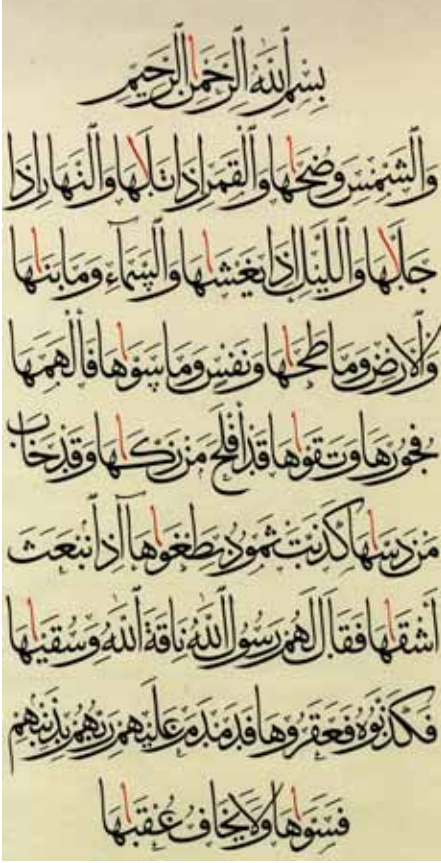 بِسْمِ ٱللَّهِ ٱلرَّحْمَٰنِ ٱلرَّحِيمِ
وَٱلشَّمْسِ وَضُحَىٰهَا وَٱلْقَمَرِ إِذَا تَلَىٰهَا وَٱلنَّهَارِ إِذَا
جَلَّىٰهَا وَٱلَّيْلِ إِذَا يَغْشَىٰهَا وَٱلسَّمَآءِ وَمَا بَنَىٰهَا
وَٱلْأَرْضِ وَمَا طَحَىٰهَا وَنَفْسٍ وَمَا سَوَّىٰهَا فَأَلْهَمَهَا
فُجُورَهَا وَتَقْوَىٰهَا قَدْ أَفْلَحَ مَن زَكَّىٰهَا وَقَدْ خَابَ
مَن دَسَّىٰهَا كَذَّبَتْ ثَمُودُ بِطَغْوَىٰهَآ إِذِ ٱنۢبَعَثَ
أَشْقَىٰهَا فَقَالَ لَهُمْ رَسُولُ ٱللَّهِ نَاقَةَ ٱللَّهِ وَسُقْيَٰهَا
فَكَذَّبُوهُ فَعَقَرُوهَا فَدَمْدَمَ عَلَيْهِمْ رَبُّهُم بِذَنۢبِهِمْ
فَسَوَّىٰهَا وَلَا يَخَافُ عُقْبَٰهَا